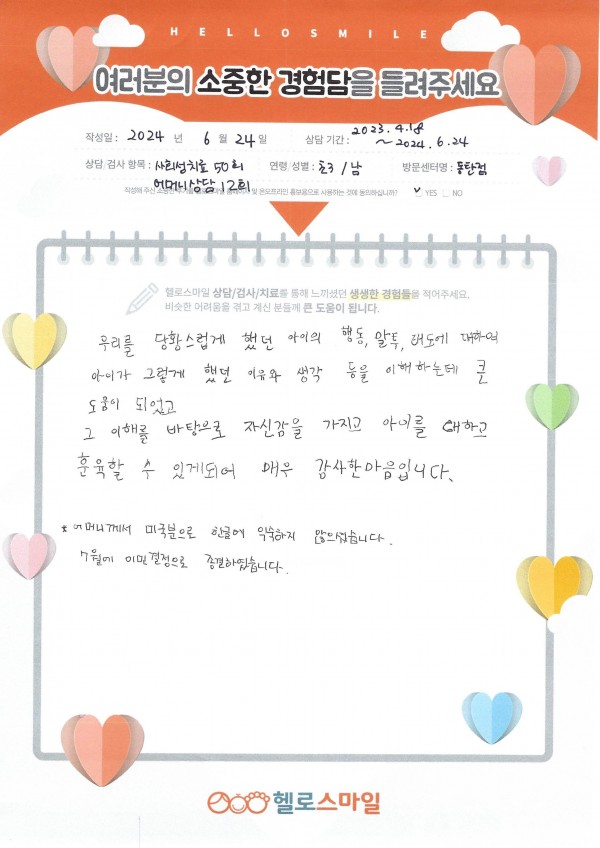 HELLOSMILE
여러분의 소중한 경험담을 들려주세요
작성일 : 2024 년 6 월 24 일 상담 기간 : 2023. 4. 18 ~ 2024. 6. 24
상담/검사 항목 : 사회성치료 50회 어머니상담 12회 연령/성별 : 초3 / 남 방문센터명 : 동탄점
작성해 주신 소중한 후기를 헬로스마일 홈페이지 및 온오프라인 홍보용으로 사용하는 것에 동의하십니까? ✓ YES □ NO
헬로스마일 상담/검사/치료를 통해 느끼셨던 생생한 경험들을 적어주세요.
비슷한 어려움을 겪고 계신 분들께 큰 도움이 됩니다.
우리를 당황스럽게 했던 아이의 행동, 말투, 태도에 대하여
아이가 그렇게 했던 이유와 생각 등을 이해하는데 큰
도움이 되었고
그 이해를 바탕으로 자신감을 가지고 아이를 대하고
훈육할 수 있게되어 매우 감사한마음입니다.
* 어머니께서 미국분으로 한글에 익숙하지 않으셨습니다.
7월에 이민결정으로 종결하였습니다.
헬로스마일